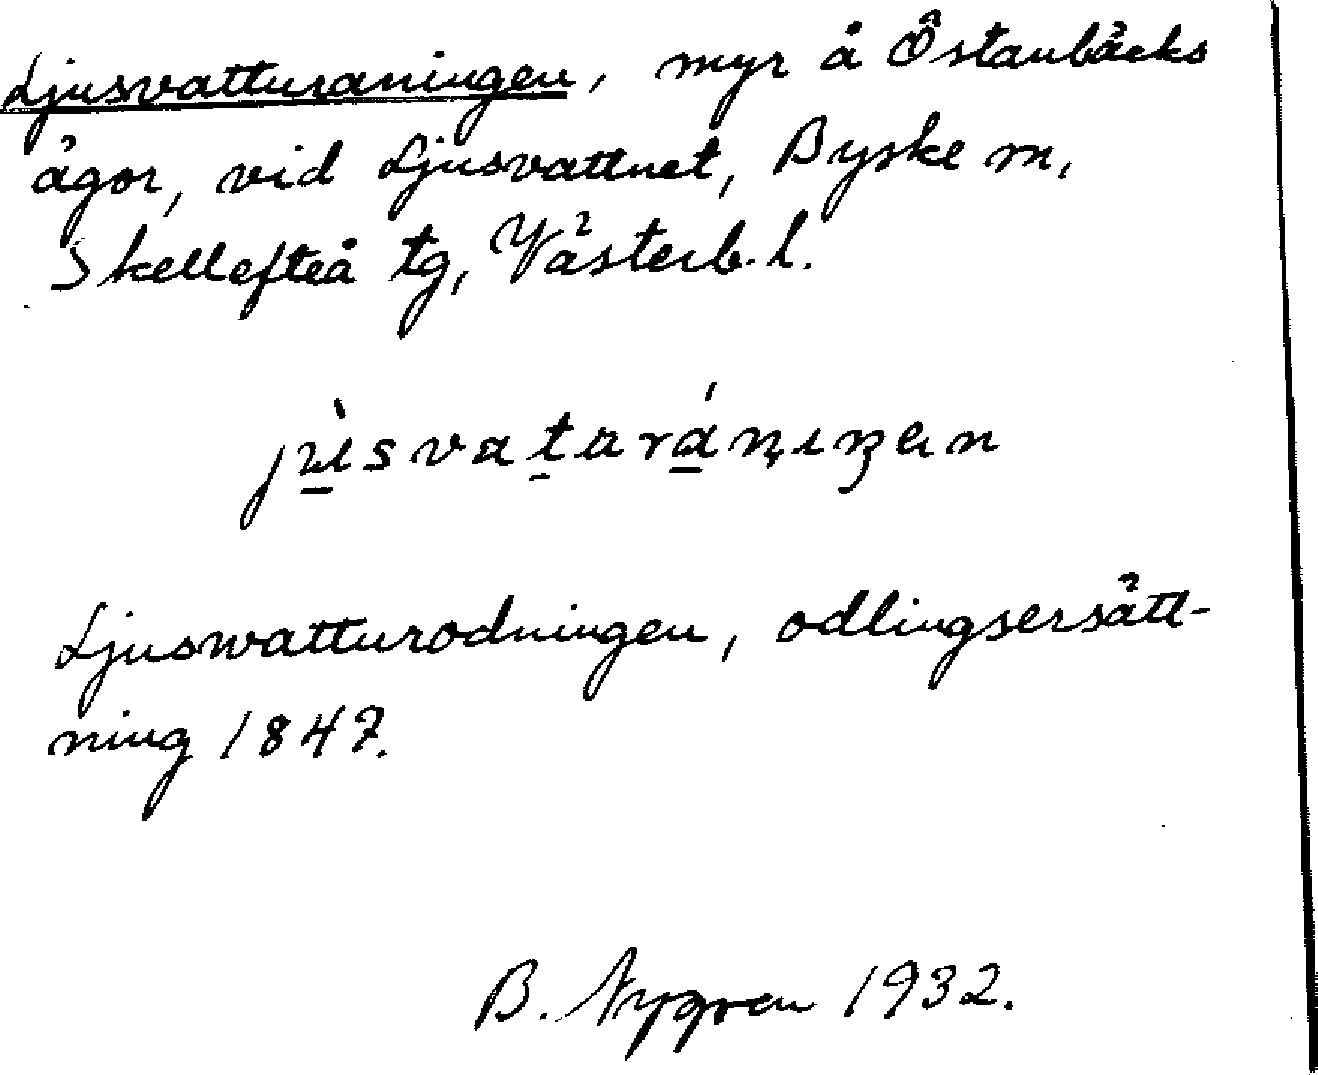 Ljusvatturaningen, myr å Östanbäcks
ägor, vid Ljusvattnet, Byske sn,
Skellefteå tg, Västerb. l.
jùsvatarániŋen
Ljuswatturodningen, odlingsersätt-
ning 1847.
B. Nygren 1932.